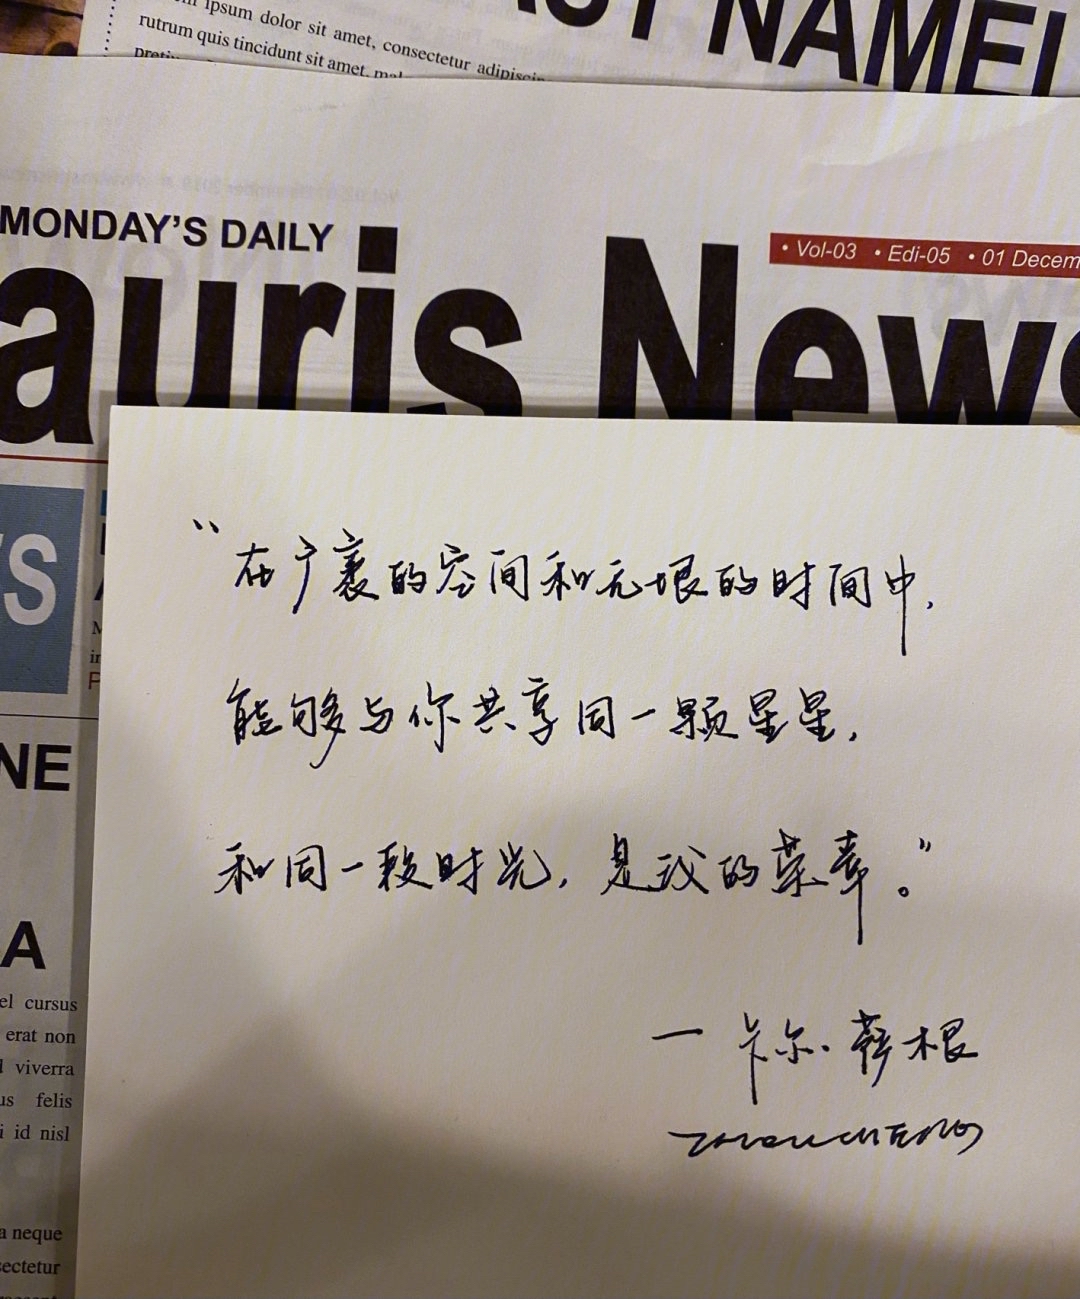 ipsum dolor sit amet, consectetur adipiscin
rutrum quis tincidunt sit amet, mal
NAMEL
MONDAY'S DAILY
• Vol-03 • Edi-05 • 01 Decem
auris News
S
NE
A
el cursus
erat non
viverra
us felis
i id nisl
a neque
sectetur
“在广袤的空间和无垠的时间中,
能够与你共享同一颗星星,
和同一段时光,是我的荣幸。”
一卡尔·萨根
ZHOUCHENG